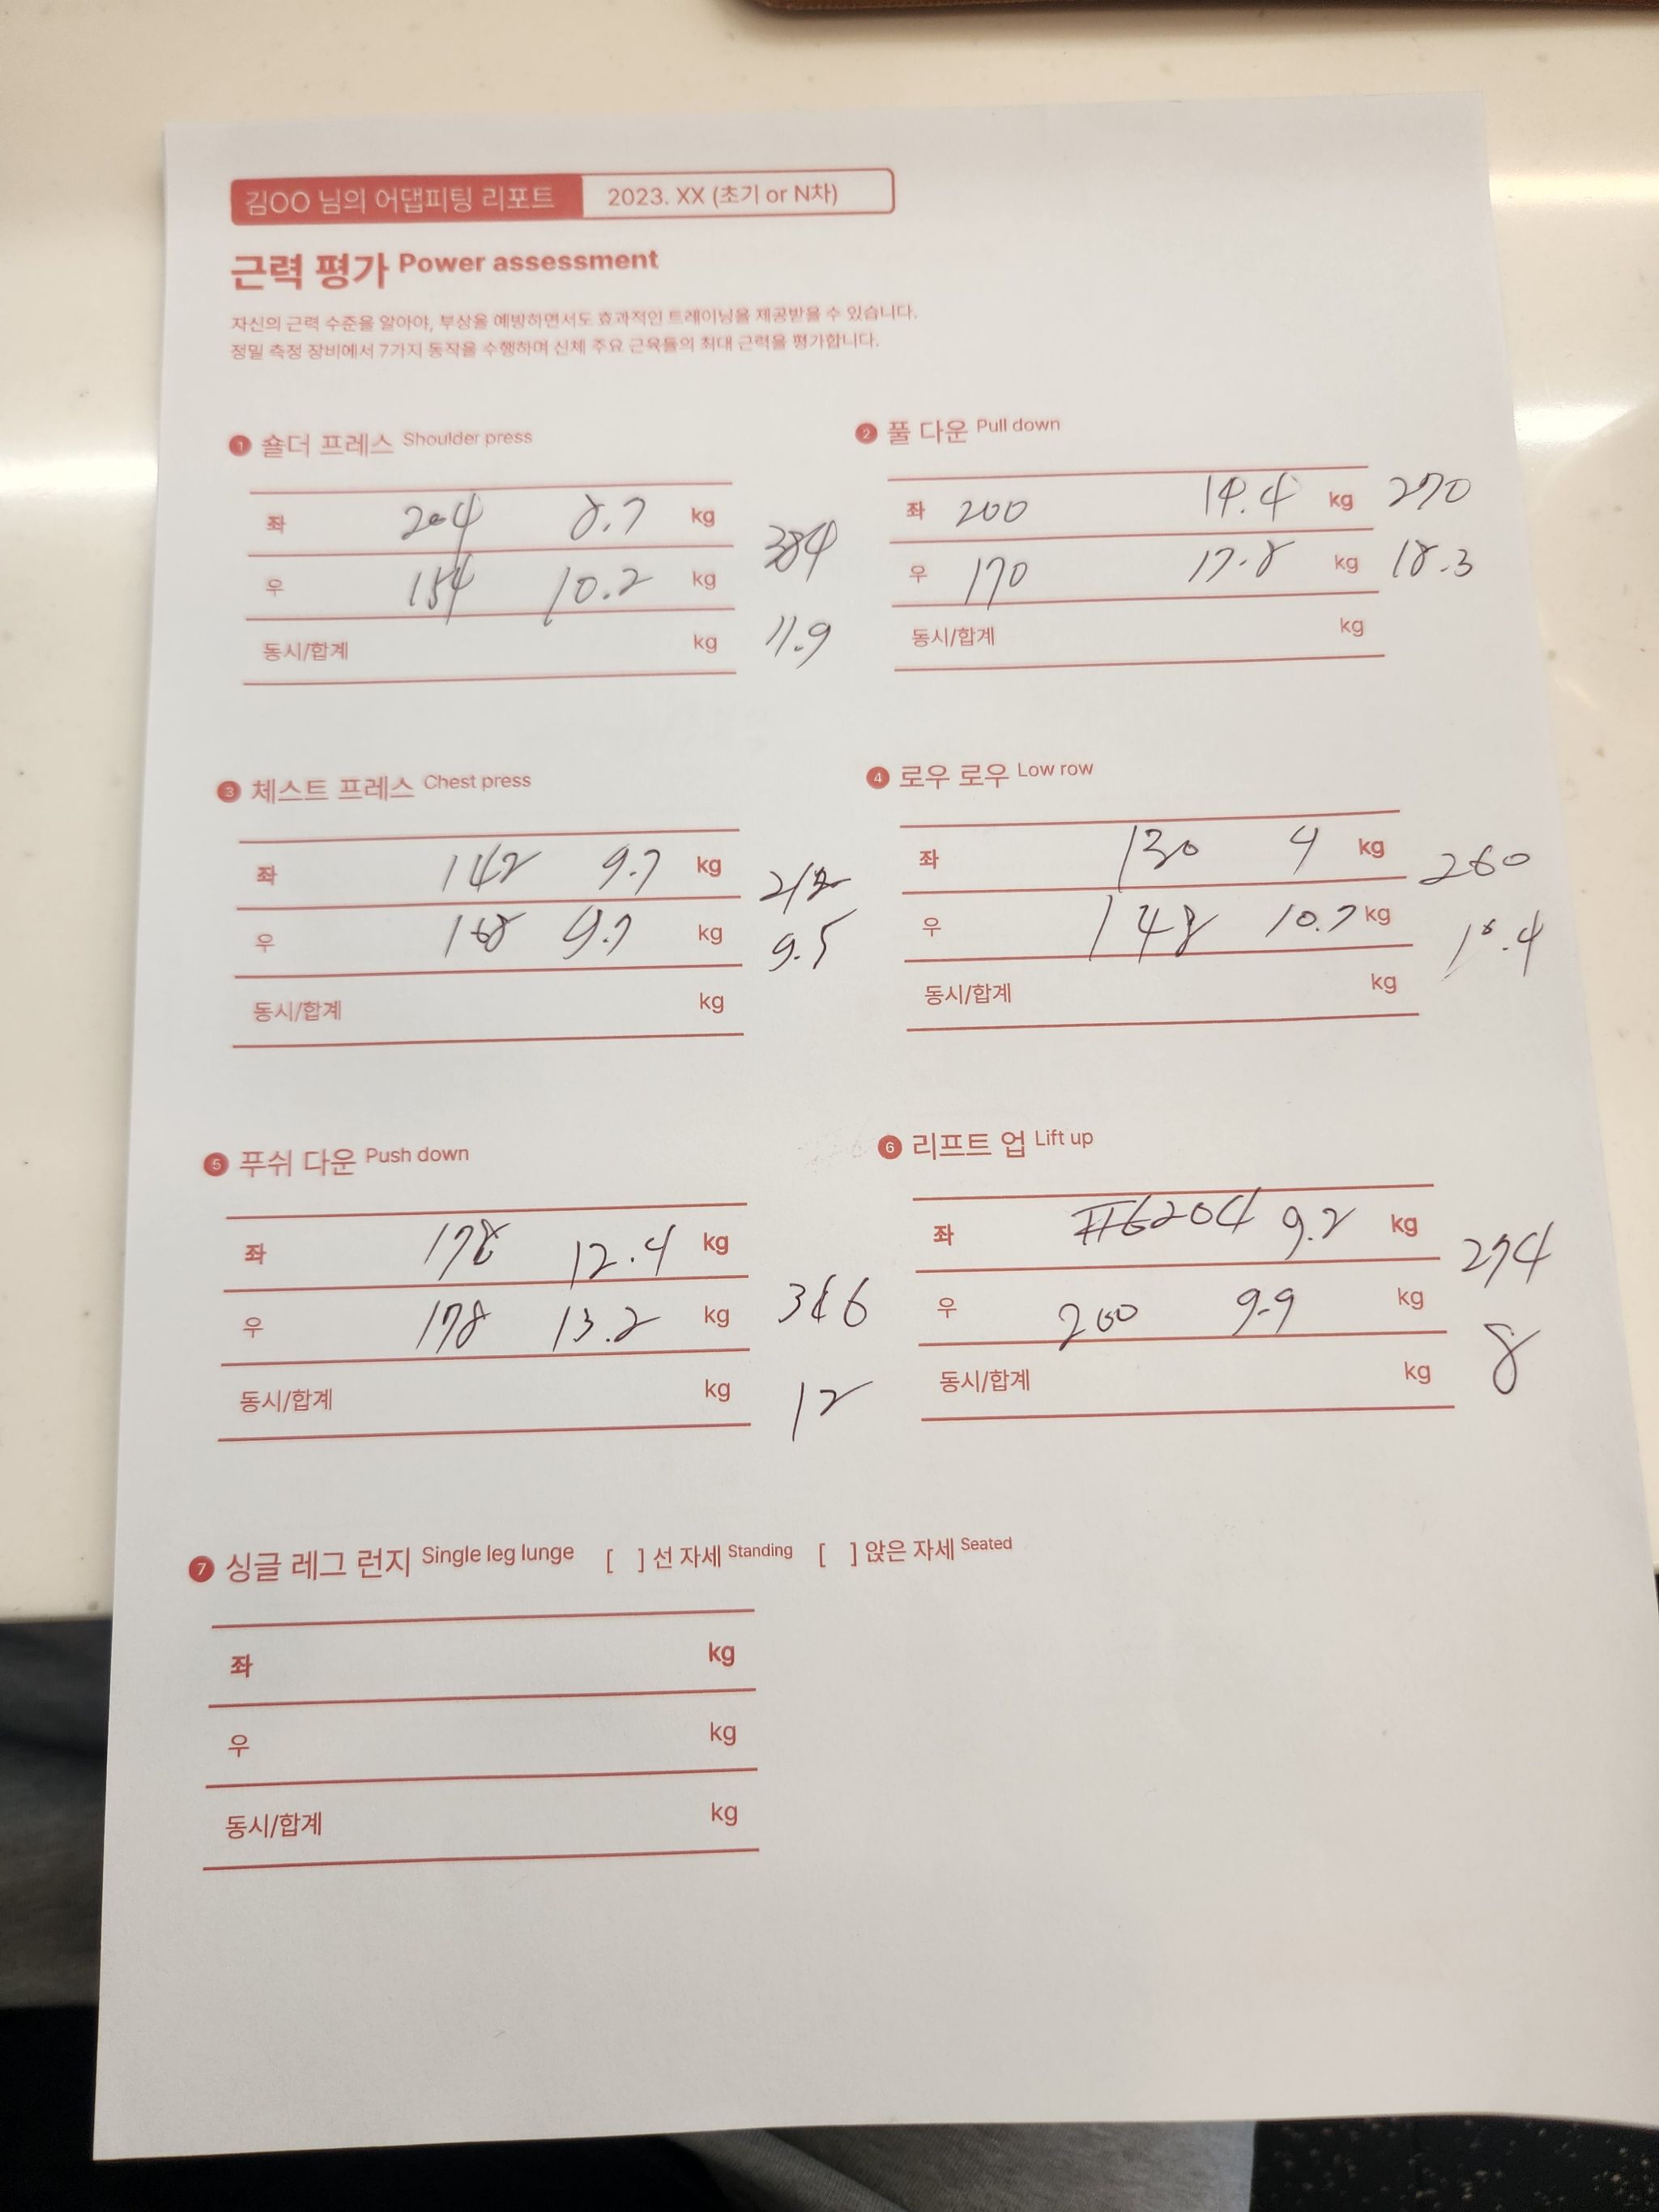 김OO 님의 어댑피팅 리포트 2023. XX (초기 or N차)
근력 평가 Power assessment
자신의 근력 수준을 알아야, 부상을 예방하면서도 효과적인 트레이닝을 제공받을 수 있습니다.
정밀 측정 장비에서 7가지 동작을 수행하며 신체 주요 근육들의 최대 근력을 평가합니다.
1 숄더 프레스 Shoulder press
좌 204 8.7 kg
384
우 154 10.2 kg
동시/합계 kg
11.9
2 풀 다운 Pull down
좌 200 19.4 kg 270
우 170 17.8 kg 18.3
동시/합계 kg
3 체스트 프레스 Chest press
좌 142 9.7 kg
우 9.7 kg
9.5
동시/합계 kg
4 로우 로우 Low row
좌 130 9 kg
260
우 148 10.7 kg
동시/합계 kg
5 푸쉬 다운 Push down
좌 178 12.4 kg
우 178 13.2 kg
동시/합계 kg
12
6 리프트 업 Lift up
좌 204 9.2 kg
274
우 200 9.9 kg
8
동시/합계 kg
7 싱글 레그 런지 Single leg lunge [ ] 선 자세 Standing [ ] 앉은 자세 Seated
좌 kg
우 kg
동시/합계 kg